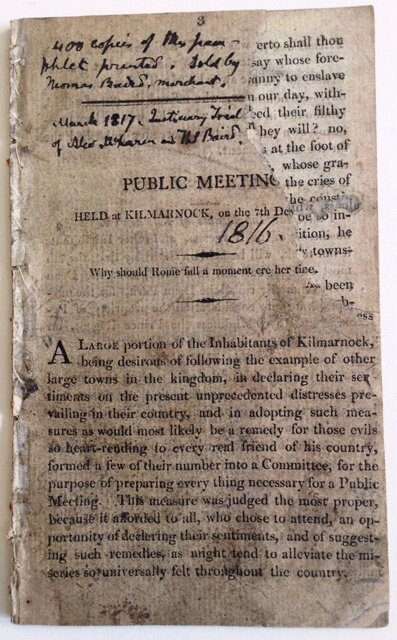 3
400 copies of this pam-
phlet printed. Sold by
Thomas Baird, merchant.
March 1817. Justiciary Trial
of Alexr McLaren and Ths Baird.
erto shall thou
say whose fore-
anny to enslave
n our day, with-
eed their filthy
hey will? no,
s at the foot of
whose gra-
the cries of
the consti
be so in-
ition, he
towns-
been
b-
ess
PUBLIC MEETING
HELD at KILMARNOCK, on the 7th De
1816.
Why should Rome fall a moment ere her time.
A LARGE portion of the Inhabitants of Kilmarnock,
being desirous of following the example of other
large towns in the kingdom, in declaring their sen
timents on the present unprecedented distresses pre-
vailing in their country, and in adopting such mea-
sures as would most likely be a remedy for those evils
so heart-rending to every real friend of his country,
formed a few of their number into a Committee, for the
purpose of preparing every thing necessary for a Public
Meeting. This measure was judged the most proper,
because it afforded to all, who chose to attend, an op-
portunity of declering their sentiments, and of suggest-
ing such remedies, as might tend to alleviate the mi-
series so universally felt throughout the country.